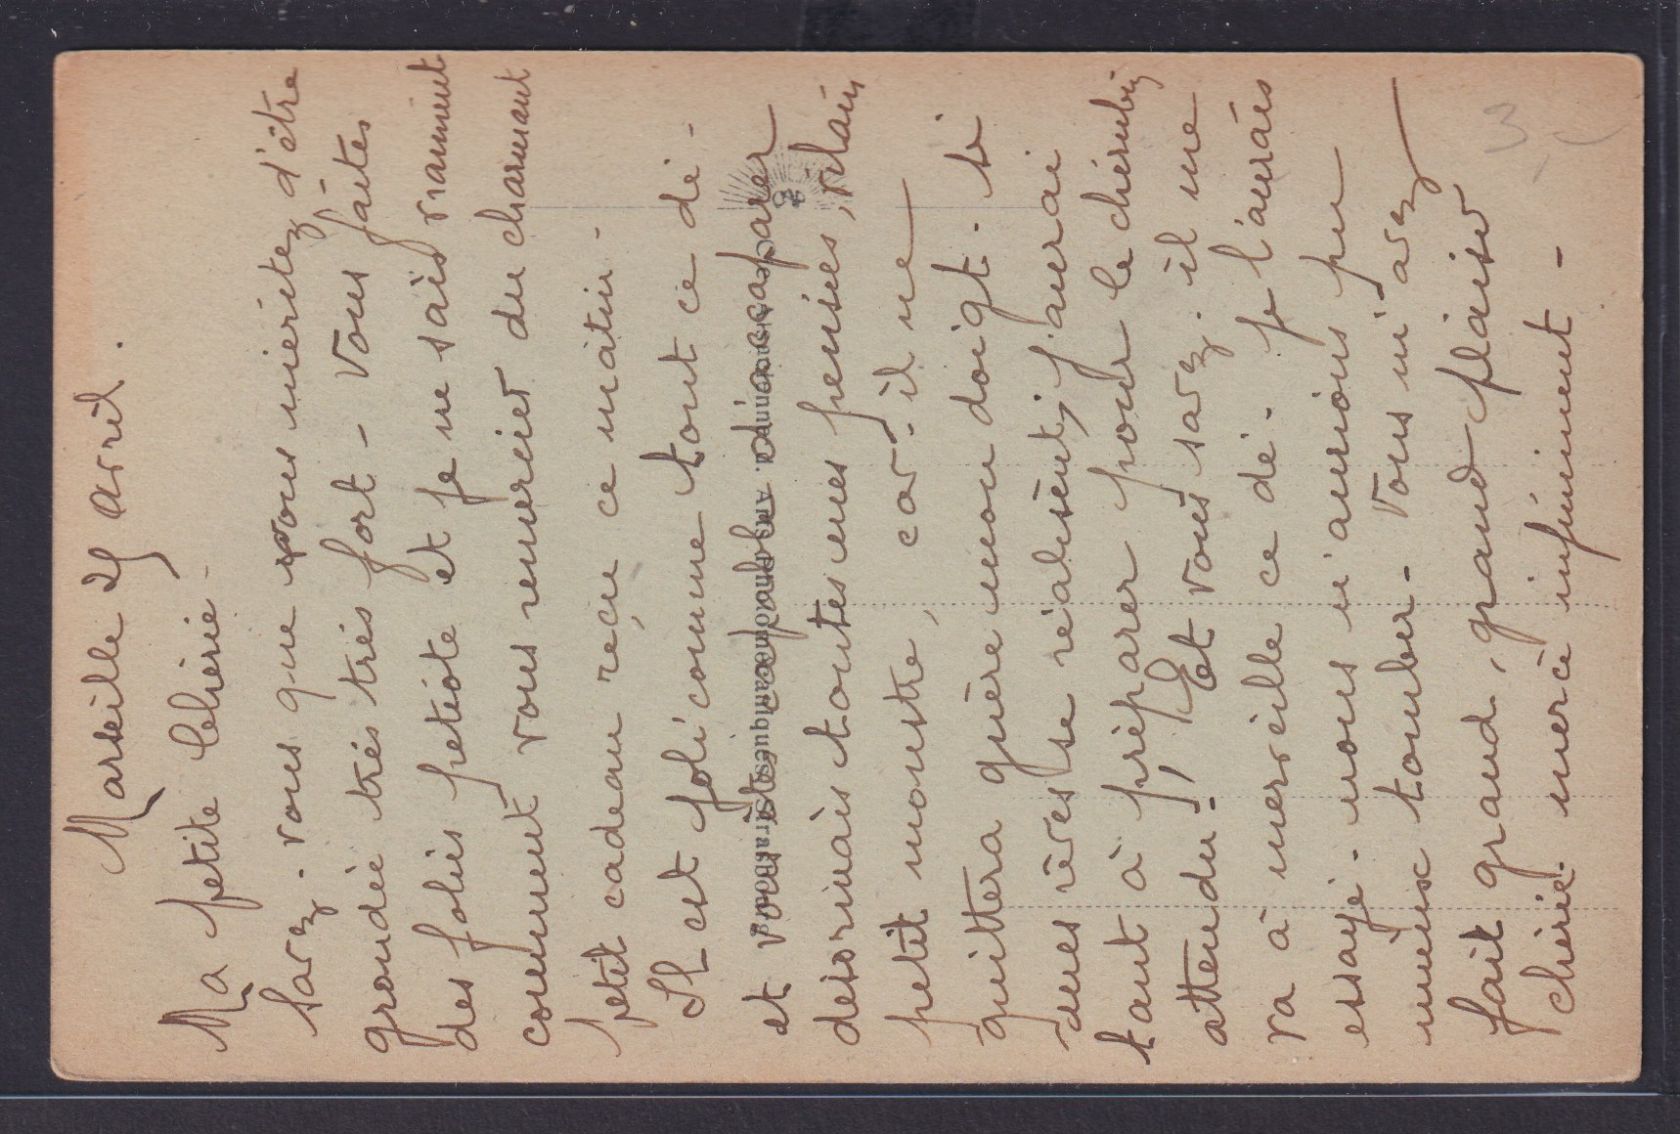 Marseille 25 avril.
Ma petite Chérie -
Savez-vous que vous meritez d'être
grondée très très fort - Vous faites
des folies petiote et je ne sais vraiment
comment vous remercier du charmant
petit cadeau reçu ce matin -
Il est joli comme tout ce dé -
et vous êtes capable d'accaparer
desormais toutes mes pensées, vilain
petit monstre, car il ne
quittera guère mon doigt. Si
mes rêves se réalisent, j'aurai
tant à préparer pour le chérubin
attendu! Et vous savez il me
va à merveille ce dé - je l'aurais
essayé - nous n'aurions pu
mieux tomber - Vous m'avez
fait grand, grand plaisir
chérie merci infiniment -